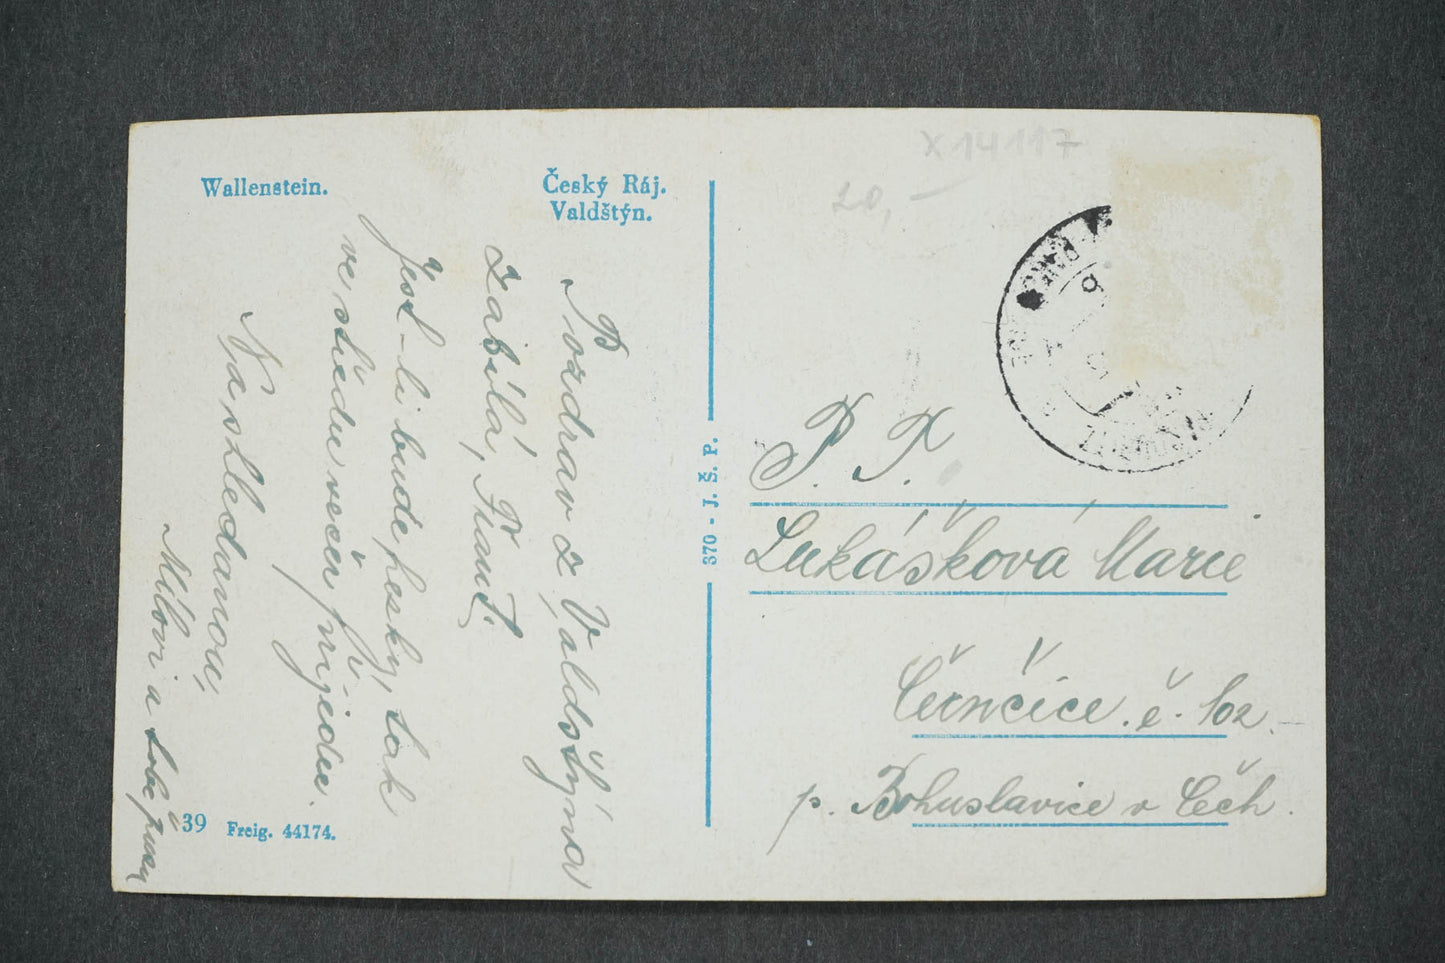 Wallenstein.
Český Ráj.
Valdštýn.
Pozdrav z Valdštýna
zabílá,
Jest-li bude hesky, tak
ve středu večer přijedu.
Nashledanou,
Milovi a tobě
39 Freig. 44174.
370 - J. Š. P.
X 14117
20,—
P. T.
Lukášková Marie
Černčice. č. 102.
p. Bohuslavice v Čech.